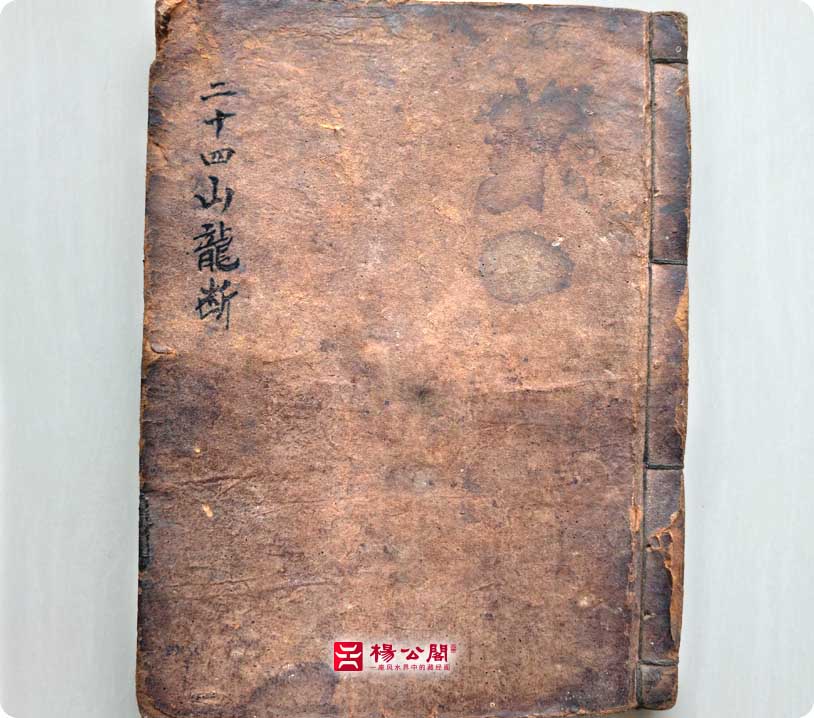 二十四山龍断
楊公閣
一座风水界中的藏经阁